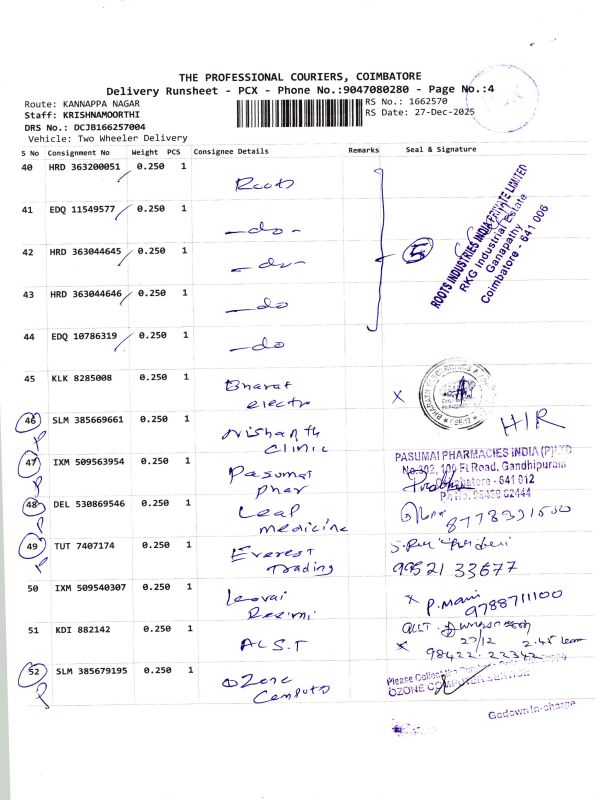 THE PROFESSIONAL COURIERS, COIMBATORE
Delivery Runsheet - PCX - Phone No.:9047080280 - Page No.:4
Route: KANNAPPA NAGAR
RS No.: 1662570
Staff: KRISHNAMOORTHI
RS Date: 27-Dec-2025
DRS No.: DCJB166257004
Vehicle: Two Wheeler Delivery
S No Consignment No Weight PCS Consignee Details Remarks Seal & Signature
40 HRD 363200051 0.250 1 Roots
41 EDQ 11549577 0.250 1 -do-
42 HRD 363044645 0.250 1 -do-
43 HRD 363044646 0.250 1 -do
44 EDQ 10786319 0.250 1 -do
5
ROOTS INDUSTRIES INDIA PRIVATE LIMITED
RKG Industrial Estate
Ganapathy
Coimbatore - 641 006
45 KLK 8285008 0.250 1 Bharat
electro X
46 SLM 385669661 0.250 1 Nishanth
Clinic H/R
P
47 IXM 509563954 0.250 1 Pasumai
phar
P
PASUMAI PHARMACIES INDIA (P) LTD
No.302, 100 Ft Road, Gandhipuram
Coimbatore - 641 012
48 DEL 530869546 0.250 1 Leap
medicine
P
49 TUT 7407174 0.250 1 Everest
Trading
P
99521 33677
50 IXM 509540307 0.250 1
X P.mani
9788711100
51 KDI 882142 0.250 1 ALS.T
27/12 2.45
X 98422. 22342
52 SLM 385679195 0.250 1 Ozone
Computo
P
Please Collect the
OZONE COMPUTER SERVICE
Godown In-charge